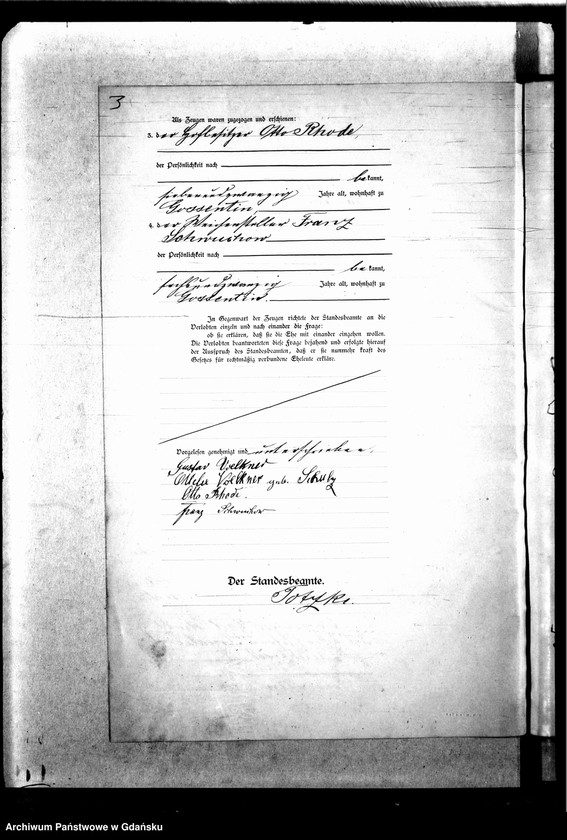 3
Als Zeugen waren zugezogen und erschienen:
3. der Hofbesitzer Otto Rhode,
der Persönlichkeit nach
bekannt,
siebenundzwanzig Jahre alt, wohnhaft zu
Gossentin,
4. der Weichensteller Franz
Schwuchow
der Persönlichkeit nach
bekannt,
Jahre alt, wohnhaft zu
Gossentin.
In Gegenwart der Zeugen richtete der Standesbeamte an die
Verlobten einzeln und nach einander die Frage:
ob sie erklären, daß sie die Ehe mit einander eingehen wollen.
Die Verlobten beantworteten diese Frage bejahend und erfolgte hierauf
der Ausspruch des Standesbeamten, daß er sie nunmehr kraft des
Gesetzes für rechtmäßig verbundene Eheleute erkläre.
Vorgelesen genehmigt und unterschrieben.
Gustav Voelkner
Voelkner geb. Schulz
Otto Rhode.
Franz
Der Standesbeamte.
Potzke.
Archiwum Państwowe w Gdańsku